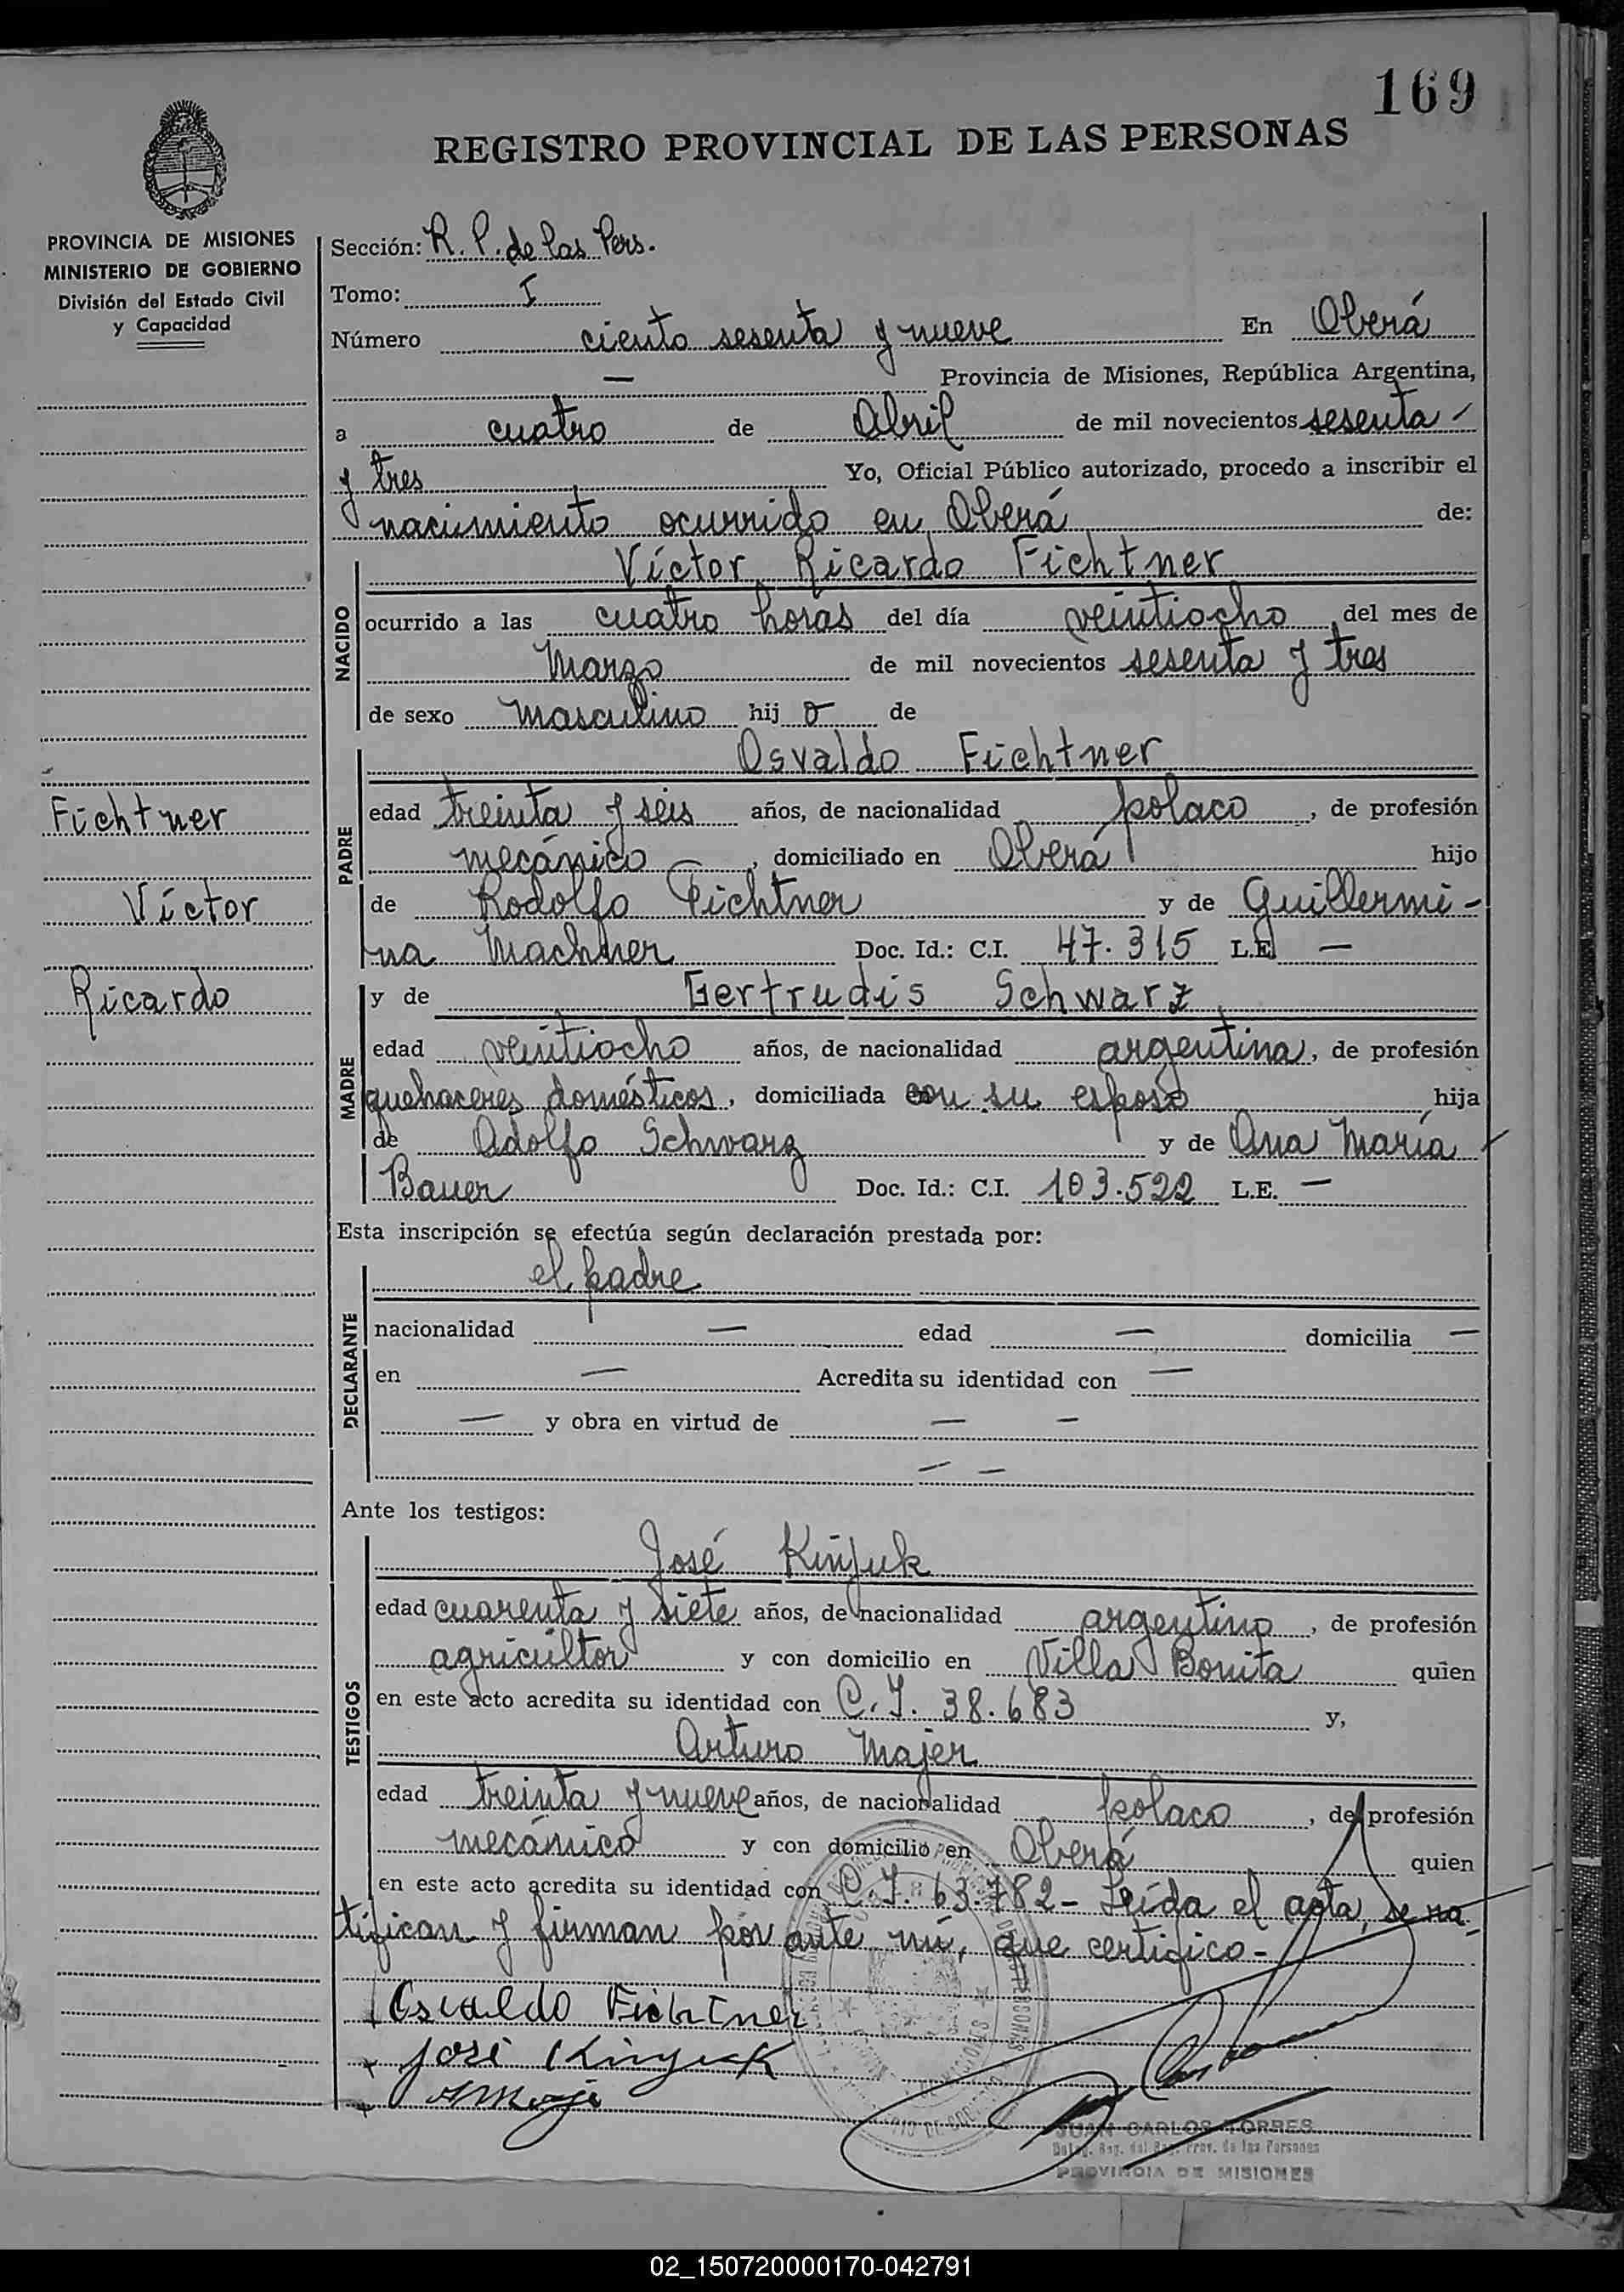 169
REGISTRO PROVINCIAL DE LAS PERSONAS
PROVINCIA DE MISIONES
MINISTERIO DE GOBIERNO
División del Estado Civil
y Capacidad
Sección: R. P. de las Pers.
Tomo: I
Número ciento sesenta y nueve En Oberá
— Provincia de Misiones, República Argentina,
a cuatro de Abril de mil novecientos sesenta
y tres Yo, Oficial Público autorizado, procedo a inscribir el
nacimiento ocurrido en Oberá de:
NACIDO
Víctor Ricardo Fichtner
ocurrido a las cuatro horas del día veintiocho del mes de
Marzo de mil novecientos sesenta y tres
de sexo masculino hij o de
PADRE
Osvaldo Fichtner
edad treinta y seis años, de nacionalidad polaco, de profesión
mecánico, domiciliado en Oberá hijo
de Rodolfo Fichtner y de Guillermi-
na Machner Doc. Id.: C.I. 47.315 L.E. —
Fichtner
Víctor
Ricardo
MADRE
y de Gertrudis Schwarz
edad veintiocho años, de nacionalidad argentina, de profesión
quehaceres domésticos, domiciliada con su esposo hija
de Adolfo Schwarz y de Ana María
Bauer Doc. Id.: C.I. 103.522 L.E. —
Esta inscripción se efectúa según declaración prestada por:
DECLARANTE
el padre
nacionalidad — edad — domicilia —
en — Acredita su identidad con —
— y obra en virtud de — —
— —
Ante los testigos:
TESTIGOS
José Kinjuk
edad cuarenta y siete años, de nacionalidad argentino, de profesión
agricultor y con domicilio en Villa Bonita quien
en este acto acredita su identidad con C.I. 38.683 y,
Arturo Majer
edad treinta y nueve años, de nacionalidad polaco, de profesión
mecánico y con domicilio en Oberá quien
en este acto acredita su identidad con C.I. 63.782- Leída el acta, se ra-
tifican y firman por ante mí, que certifico-
Osvaldo Fichtner
José Kinjuk
JUAN CARLOS TORRES
Deleg. Reg. del Reg. Prov. de las Personas
PROVINCIA DE MISIONES
02_150720000170-042791